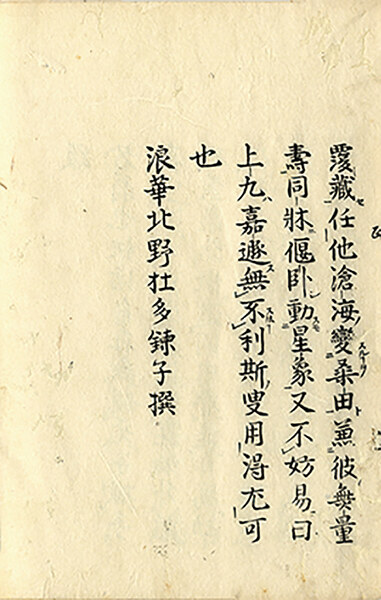 覆藏任他滄海變桑由兼彼無量
壽同牀偃卧動星象又不妨易曰
上九嘉遯無不利斯叟用得尤可
也
浪華北野杜多錬子撰